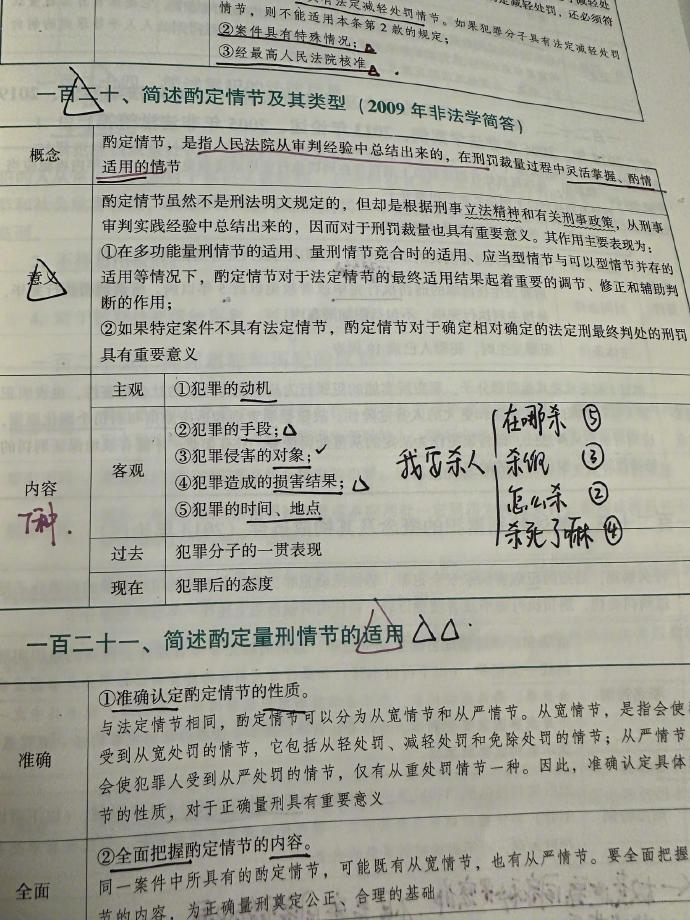 具有法定减轻处罚情节。如果犯罪分子具有法定减轻处罚
情节，则不能适用本条第2款的规定；
②案件具有特殊情况；
③经最高人民法院核准
一百二十、简述酌定情节及其类型（2009年非法学简答）
概念
酌定情节，是指人民法院从审判经验中总结出来的，在刑罚裁量过程中灵活掌握、酌情
适用的情节
意义
酌定情节虽然不是刑法明文规定的，但却是根据刑事立法精神和有关刑事政策，从刑事
审判实践经验中总结出来的，因而对于刑罚裁量也具有重要意义。其作用主要表现为：
①在多功能量刑情节的适用、量刑情节竞合时的适用、应当型情节与可以型情节并存的
适用等情况下，酌定情节对于法定情节的最终适用结果起着重要的调节、修正和辅助判
断的作用；
②如果特定案件不具有法定情节，酌定情节对于确定相对确定的法定刑最终判处的刑罚
具有重要意义
内容
7种.
主观 ①犯罪的动机
客观
②犯罪的手段；
③犯罪侵害的对象；
④犯罪造成的损害结果；
⑤犯罪的时间、地点
我要杀人
在哪杀 ⑤
杀谁 ③
怎么杀 ②
杀死了嘛 ④
过去 犯罪分子的一贯表现
现在 犯罪后的态度
一百二十一、简述酌定量刑情节的适用
准确
①准确认定酌定情节的性质。
与法定情节相同，酌定情节可以分为从宽情节和从严情节。从宽情节，是指会使
受到从宽处罚的情节，它包括从轻处罚、减轻处罚和免除处罚的情节；从严情节
会使犯罪人受到从严处罚的情节，仅有从重处罚情节一种。因此，准确认定具体
节的性质，对于正确量刑具有重要意义
全面
②全面把握酌定情节的内容。
同一案件中所具有的酌定情节，可能既有从宽情节，也有从严情节。要全面把握
节的内容，为正确量刑奠定公正、合理的基础